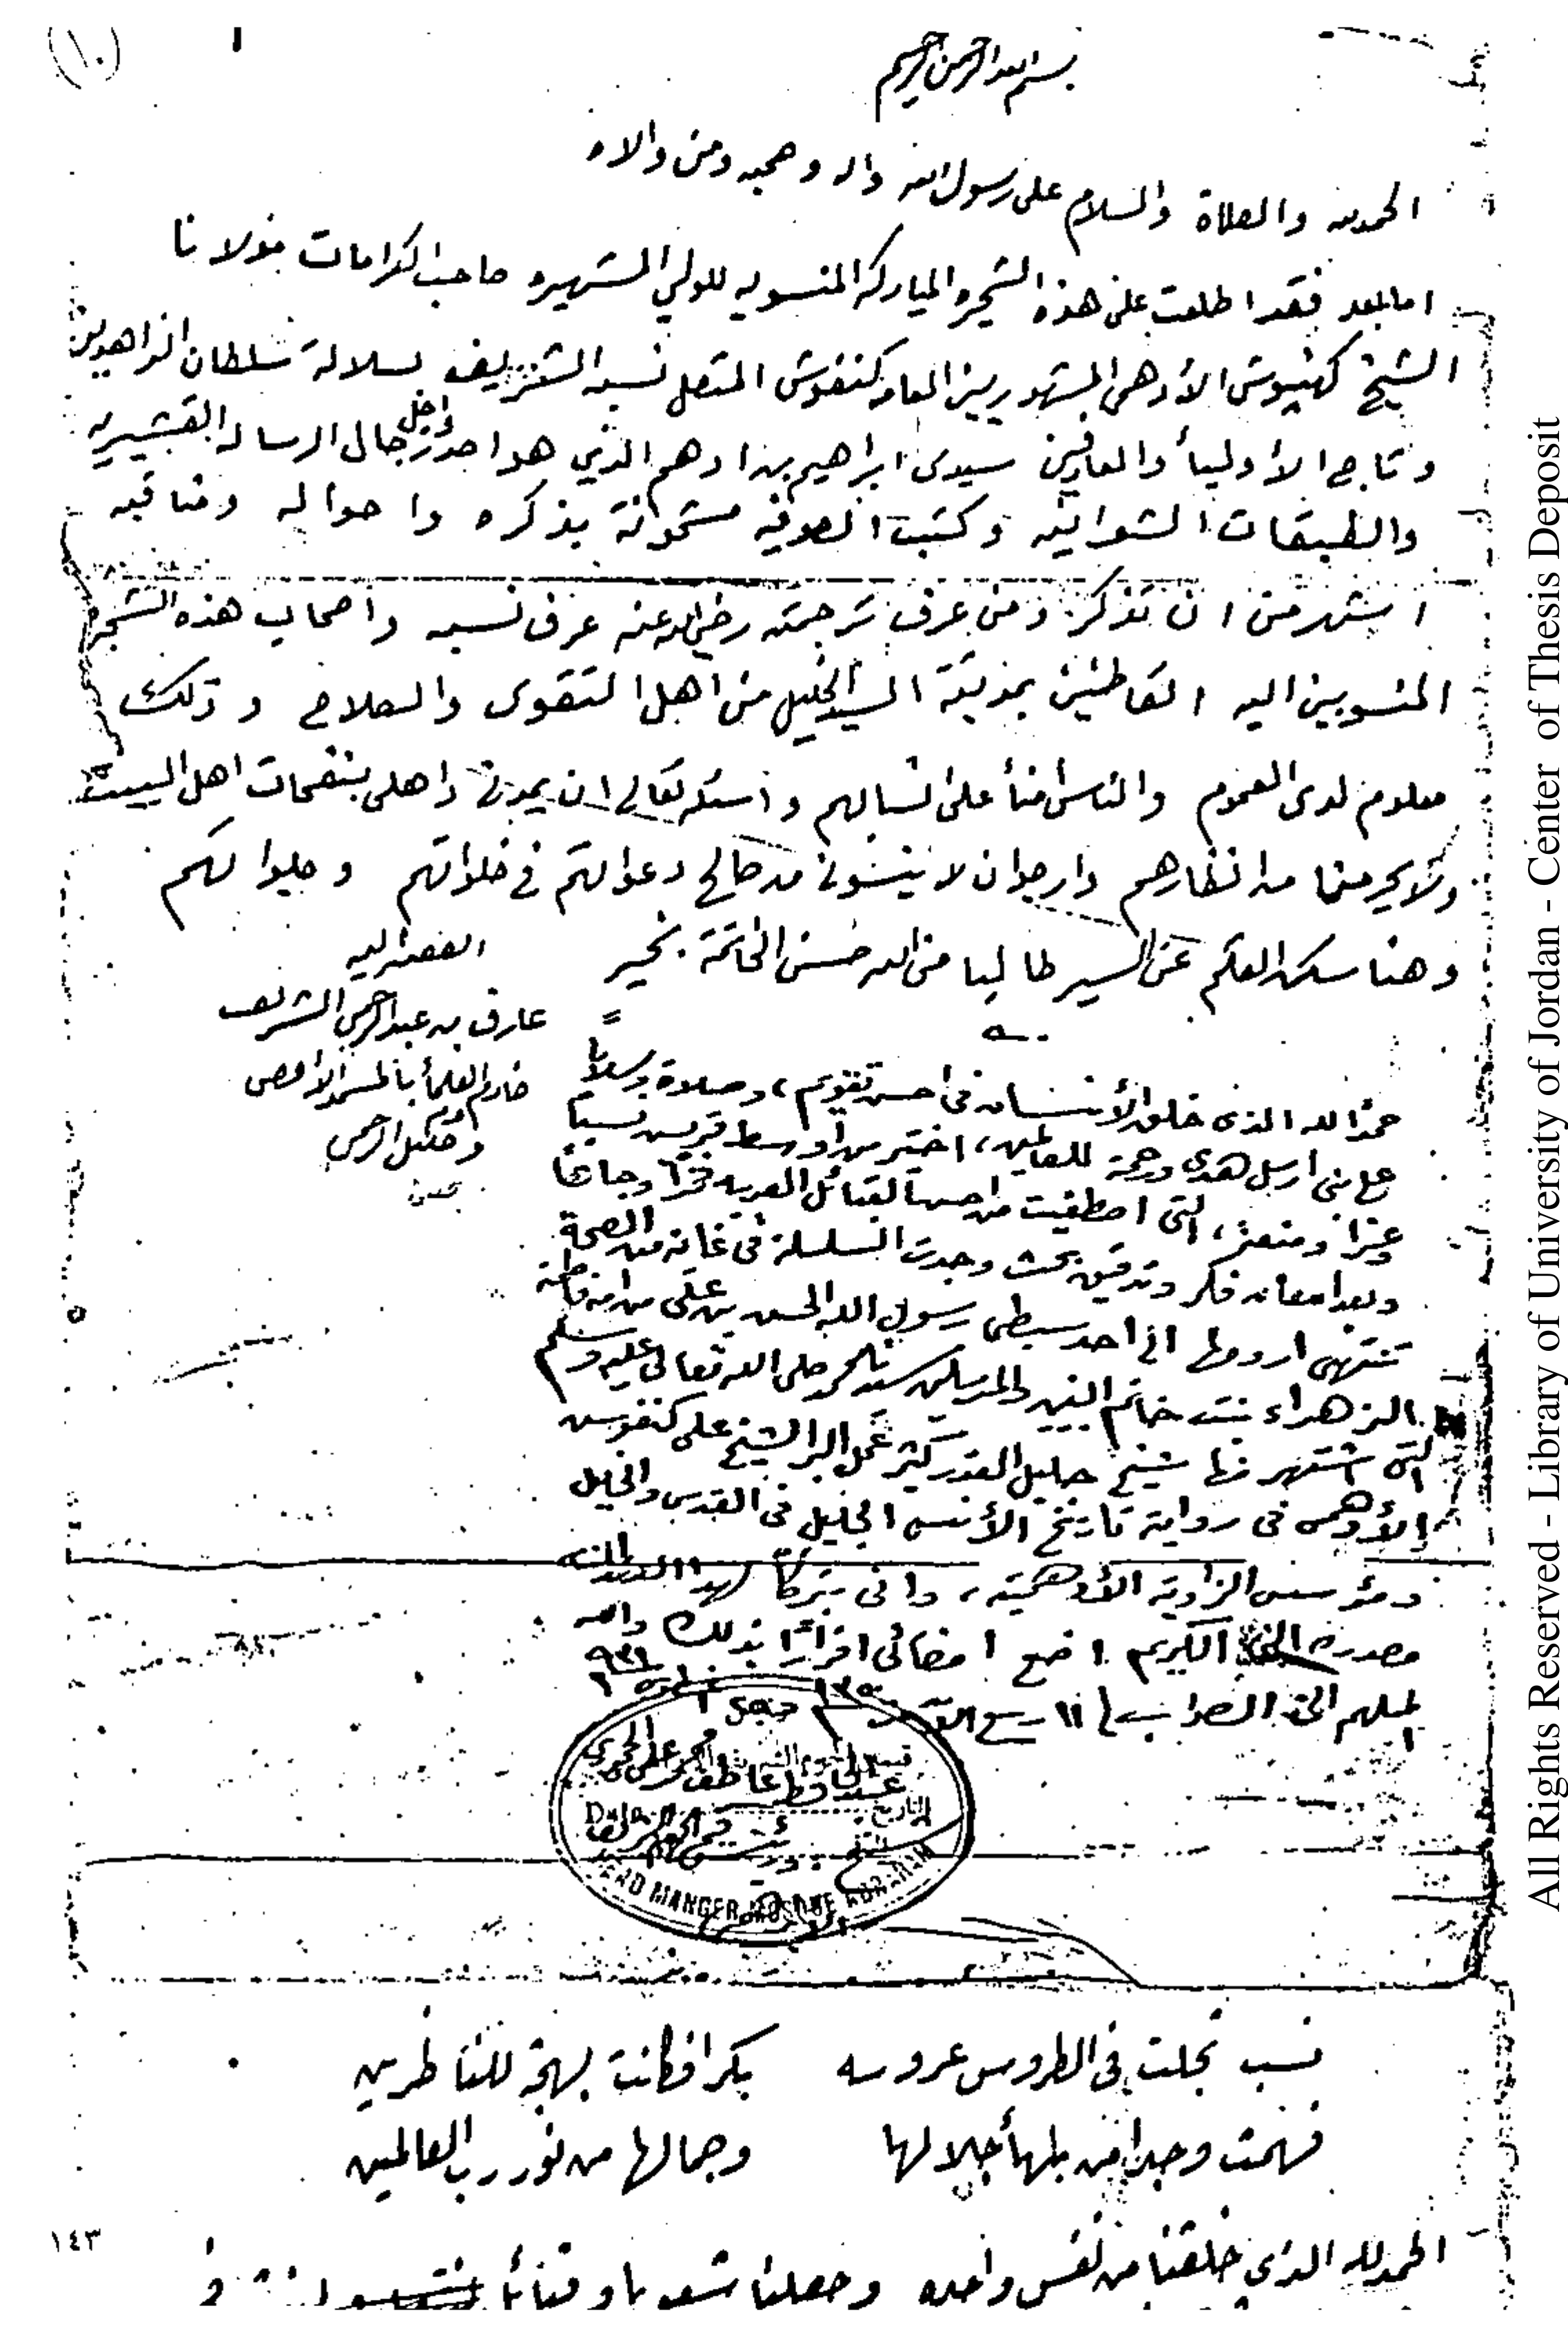 (١٠)
بسم الله الرحمن الرحيم
الحمد لله والصلاة والسلام على رسول الله واله وصحبه ومن والاه
اما بعد فقد اطلعت على هذه الشجره المباركه المنسوبه للولي الشهيره صاحب الكرامات مولانا
الشيخ كهنبوش الأدهمي المشهور بين العامه كنفوش المتصل نسبه الشريف لسلالة سلطان الزاهدين
وتاج الأوليأ والعارفين سيدى ابراهيم بن ادهم الذي هو احد رجال داخل الرساله القشيريه
والطبقات الشعرانيه وكتب الصوفيه مشحونة بذكره واحواله ومناقبه
اشهر من ان تذكر ومن عرف ترجمته رضي الله عنه عرف نسبه واصحاب هذه الشجره
المنسوبين اليه القاطنين بمدينة السيد الخليل من اهل التقوى والصلاح وذلك
معلوم لدى العموم والناس امنأ على انسابهم واسئله تعالى ان يمدني واهلى بنفحات اهل البيت
ولا يحرمنا من انظارهم وارجوا ان لا ينسوني من صالح دعواتهم في خلواتهم وجلواتهم
وهنا سكن القلم عن السير طالبا من الله حسن الخاتمة بخير
الفقير اليه
عارف بن عبد الرحمن الشريف
خادم العلمأ بالمسجد الأقصى
وخليل الرحمن
حمدًا لله الذى خلق الأنسان فى احسن تقويم، وصلاة وسلامًا
على نبى ارسل هدى ورحمة للعالمين، اختير من اوسط قريش نسبًا
وعزًا ومنعة، التى اصطفيت من احسن القبائل العربيه فخرًا وجاهًا
وبعد امعان فكر وتدقيق بحث وجدت السلسلة فى غاية من الصحة
تنتهى ارومتها الى احد سبطى رسول الله الحسن بن على من امه فاطمة
الزهراء بنت خاتم النبيين والمرسلين سيدنا محمد صلى الله تعالى عليه وسلم
التى اشتهر منها شيخ جليل القدر كثير عمل البر الشيخ على كنفوس
الأدهمى فى رواية تاريخ الأنس الجليل فى القدس والخليل
ومؤسس الزاوية الأدهمية، وانى تبركًا بهذا
مصدره الكريم اضع امضائى اقرارًا بذلك والله
الملهم الى الصواب ١١ ربيع
التاريخ
Date
HEAD MANGER MOSQUE
نسب تجلت فى الطروس عروسه بكرا فكانت بهجة للناظرين
فهمت وجدا من بلهأ جلالها وجمالها من نور رب العالمين
الحمد لله الذي خلقنا من نفس واحده وجعلنا شعوبا وقبائل
١٤٣
All Rights Reserved - Library of University of Jordan - Center of Thesis Deposit